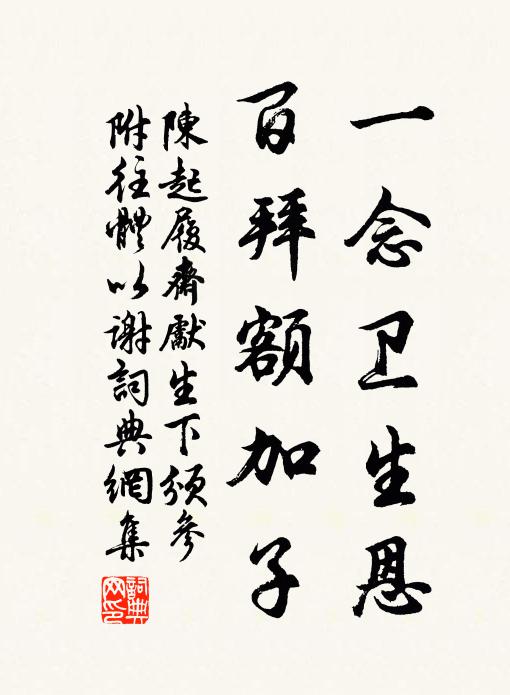 一念卫生恩
百拜額加子
陳起履齋獻生下頒參
附往體以謝詞典網集
詞典網印